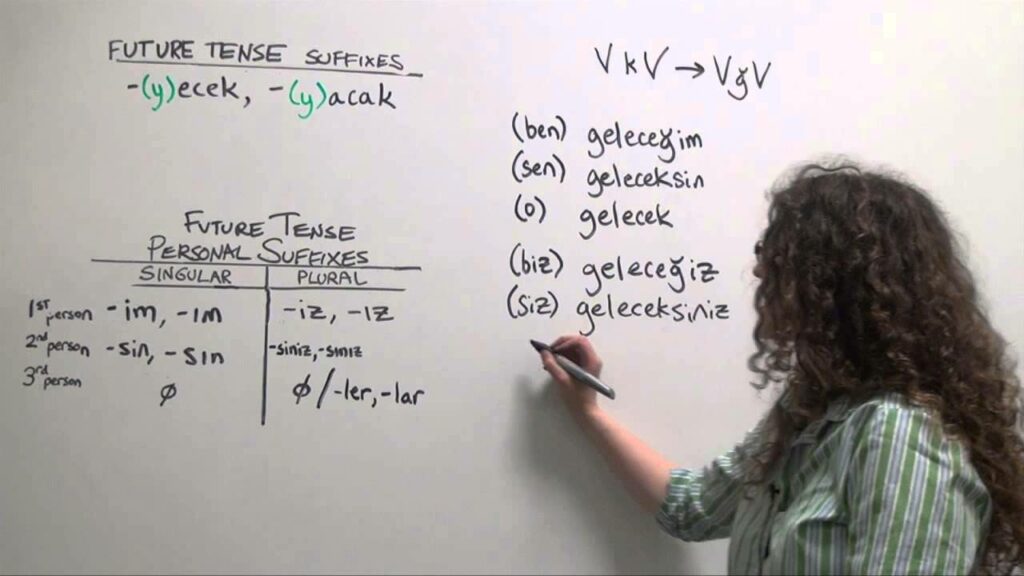 FUTURE TENSE SUFFIXES
-(y)ecek, -(y)acak
FUTURE TENSE
PERSONAL SUFFIXES
SINGULAR PLURAL
1st person -im, -ım -iz, -ız
2nd person -sin, -sın -siniz, -sınız
3rd person ∅ ∅/-ler, -lar
VkV → VğV
(ben) geleceğim
(sen) geleceksin
(o) gelecek
(biz) geleceğiz
(siz) geleceksiniz